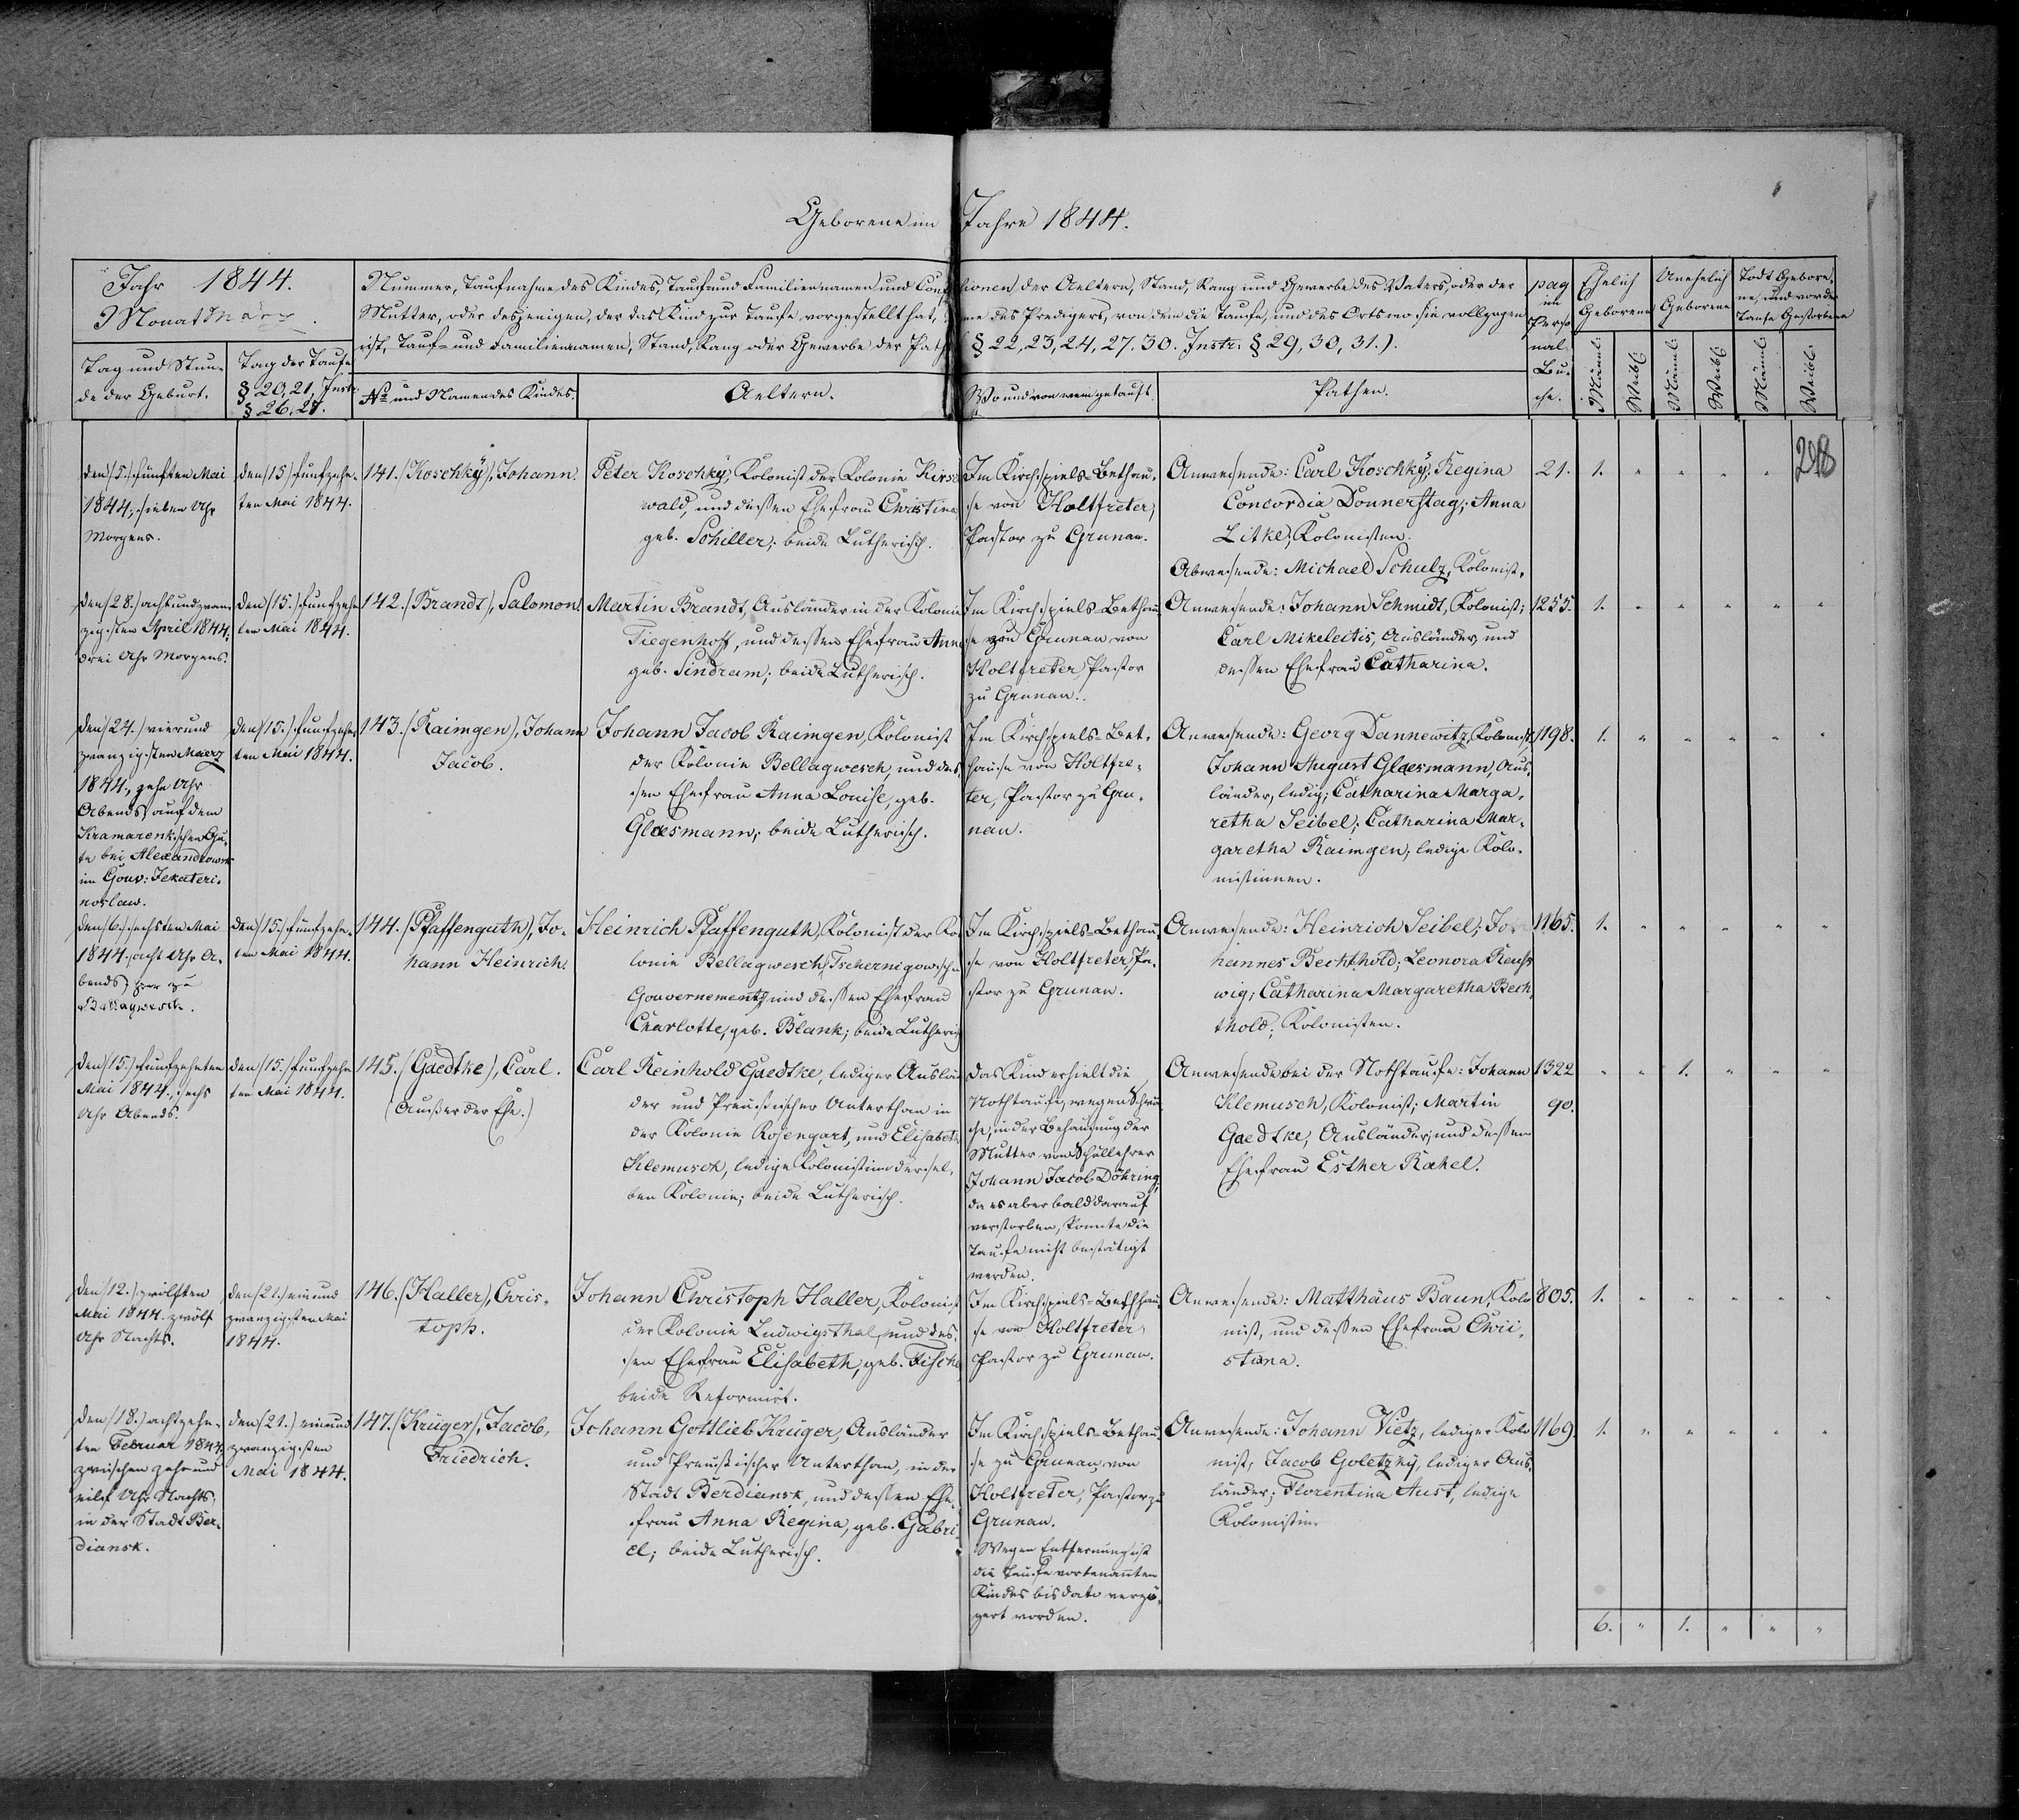 Geborene im Jahre 1844.
Jahr 1844.
Monat März.
Tag und Stun-
de der Geburt.
Tag der Taufe
§ 20, 21, Instr.
§ 26, 27.
Nummer, Taufnahme des Kindes, Tauf- und Familiennamen und Conf
Mutter, oder desjenigen, der das Kind zur Taufe vorgestellt hat,
ist, Tauf- und Familiennamen, Stand, Rang oder Gewerbe der Path
№ und Namen des Kindes.
Aeltern.
sionen der Aeltern, Stand, Rang und Gewerbe des Vaters, oder der
me des Predigers, von dem die Taufe, und des Orts wo sie vollzogen
(§ 22, 23, 24, 27. 30. Instr. § 29, 30, 31.).
Wo und von wem getauft.
Pathen.
pag
im
Perso
nal-
Bu-
che.
Ehelich
Geborene
Unehelich
Geborene
Todt Gebore-
ne, und vor der
Taufe Gestorbene
Männl.
Weibl.
Männl.
Weibl.
Männl.
Weibl.
218
den (5.) fünften Mai
1844, sieben Uhr
Morgens.
den (15) funfzehn-
ten Mai 1844.
141. (Koschky), Johann.
Peter Koschky, Kolonist der Kolonie Kirsch
wald, und dessen Ehefrau Christina
geb. Schiller; beide Lutherisch.
Im Kirchspiels-Bethau-
se von Holtfreter,
Pastor zu Grunau.
Anwesende: Carl Koschky; Regina
Concordia Donnerstag; Anna
Litke, Kolonisten.
Abwesende: Michael Schulz, Kolonist.
21. 1. " " " "
den (28.) achtundzwan-
zigsten April 1844.
drei Uhr Morgens.
den (15.) funfzehn
ten Mai 1844.
142. (Brandt), Salomon.
Martin Brandt, Ausländer in der Kolonie
Tiegenhoff, und dessen Ehefrau Anna
geb. Sindram; beide Lutherisch.
Im Kirchspiels-Bethau-
se zu Grunau von
Holtfreter, Pastor
zu Grunau.
Anwesende: Johann Schmidt, Kolonist;
Carl Mikeleitis, Ausländer, und
dessen Ehefrau Catharina.
1255. 1. " " " " "
den (24.) vierund
zwanzigsten Maerz
1844, zehn Uhr
Abends auf dem
Kramarenkischen Gu-
te bei Alexandrowsk
im Gouv: Jekateri-
noslaw.
den (15.) funfzehn
ten Mai 1844.
143. (Raimgen), Johann
Jacob.
Johann Jacob Raimgen, Kolonist
der Kolonie Bellagwesch, und des-
sen Ehefrau Anna Louise, geb.
Glaesmann; beide Lutherisch.
Im Kirchspiels-Bet-
hause von Holtfre-
ter, Pastor zu Gru-
nau.
Anwesende: Georg Dannewitz, Kolonist;
Johann August Glaesmann, Aus-
länder, ledig; Catharina Marga-
retha Seibel; Catharina Mar-
garetha Raimgen; ledige Kolo-
nistinnen.
1198. 1. " " " " "
den (6.) sechsten Mai
1844, acht Uhr A-
bends zu
Bellagwesch.
den (15.) funfzehn-
ten Mai 1844.
144. (Pfaffenguth), Jo-
hann Heinrich.
Heinrich Pfaffenguth, Kolonist der Ko
lonie Bellagwesch, Tschernigowschen
Gouvernements, und dessen Ehefrau
Charlotte, geb. Blank; beide Lutherisch
Im Kirchspiels-Bethau-
se von Holtfreter, Pa-
stor zu Grunau.
Anwesende: Heinrich Seibel; Jo
hannes Bechthold; Leonora
wig; Catharina Margaretha Bech-
thold; Kolonisten.
1165. 1. " " " " "
den (15.) funfzehnten
Mai 1844, sechs
Uhr Abends.
den (15.) funfzehn
ten Mai 1844.
145. (Gaedtke), Carl.
(Außer der Ehe.)
Carl Reinhold Gaedtke, lediger Auslän
der und Preussischer Unterthan in
der Kolonie Rosengart, und Elisabeth
Klemusch, ledige Kolonistin dersel-
ben Kolonie; beide Lutherisch.
Das Kind erhielt die
Nothtaufe, wegen Schwä
che, in der Behausung der
Mutter vom Schullehrer
Johann Jacob Döhring,
da es aber bald darauf
verstorben, konnte die
Taufe nicht bestätigt
werden.
Anwesende bei der Nothtaufe: Johann
Klemusch, Kolonist; Martin
Gaedtke, Ausländer, und dessen
Ehefrau Esther Rahel.
1322
90.
" " 1. " " "
den (12.) zwölften
Mai 1844. zwölf
Uhr Nachts.
den (21.) einund
zwanzigsten Mai
1844.
146. (Haller), Chris-
toph.
Johann Christoph Haller, Kolonist
der Kolonie Ludwigsthal, und des-
sen Ehefrau Elisabeth, geb. Fische
beide Reformirt.
Im Kirchspiels-Bethhau-
se von Holtfreter
Pastor zu Grunau.
Anwesende: Matthäus Baun, Kolo
nist, und dessen Ehefrau Chri-
stina.
805. 1. " " " " "
den (18.) achtzehn-
ten Februar 1844.
zwischen zehn und
eilf Uhr Nachts,
in der Stadt Ber-
diansk.
den (21.) einund
zwanzigsten
Mai 1844.
147. (Krüger), Jacob,
Friedrich.
Johann Gottlieb Krüger, Ausländer
und Preussischer Unterthan, in der
Stadt Berdiansk, und dessen Ehe-
frau Anna Regina, geb. Gabri-
el; beide Lutherisch.
Im Kirchspiels-Bethau-
se zu Grunau, von
Holtfreter, Pastor zu
Grunau.
Wegen Entfernung ist
die Taufe vorbenannten
Kindes bis dato verzö-
gert worden.
Anwesende: Johann Vietz, lediger Kolo
nist; Jacob Goletzky, lediger Aus-
länder; Florentina Aust, ledige
Kolonistin.
1169. 1. " " " " "
6. " 1. " " "